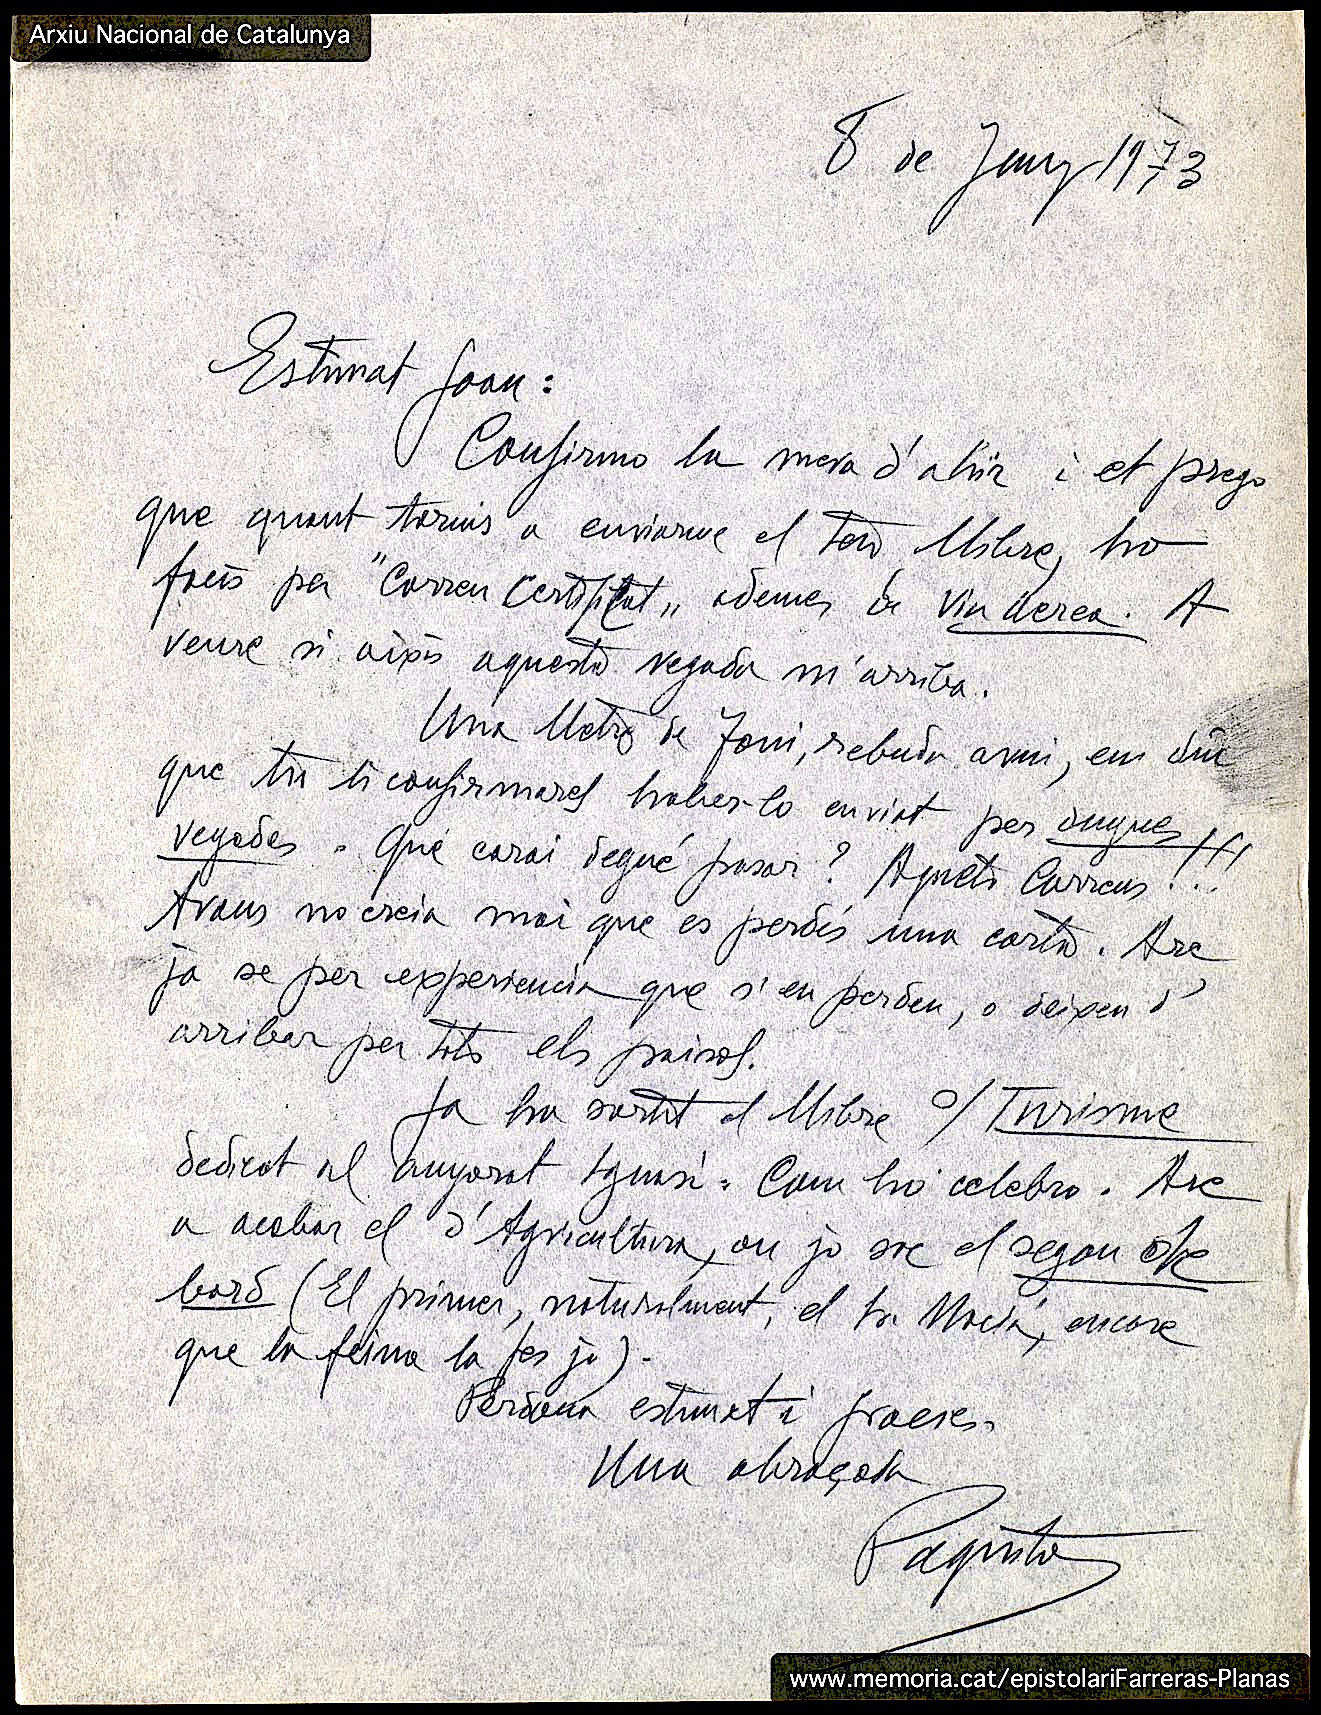 Arxiu Nacional de Catalunya
8 de Juny 1973
Estimat Joan:
Confirmo la meva d'ahir i et prego
que quant tornis a enviarme el teu llibre, ho
facis per "Correu Certificat" ademes de Via Aerea. A
veure si aixis aquesta vegada m'arriba.
Una lletra de Toni, rebuda avui, em diu
que tu li confirmares haber-lo enviat per dugues
vegades. Qué carai degué pasar? Aquets Correus!!!
Avans no creia mai que es perdés una carta. Are
ja se per experiencia que s'en perden, o deixen d'
arribar per tots els paisos.
Ja ha sortit el llibre s/ Turisme
dedicat al anyorat Ignasi. Com ho celebro. Are
a acabar el d'Agricultura, on jo sre el segon de
bord (El primer, naturalment, el Sr. Maciá, encare
que la feina la fes jo).
Perdona estimat i gracies.
Una abraçada
Paquita
www.memoria.cat/epistolariFarreras-Planas